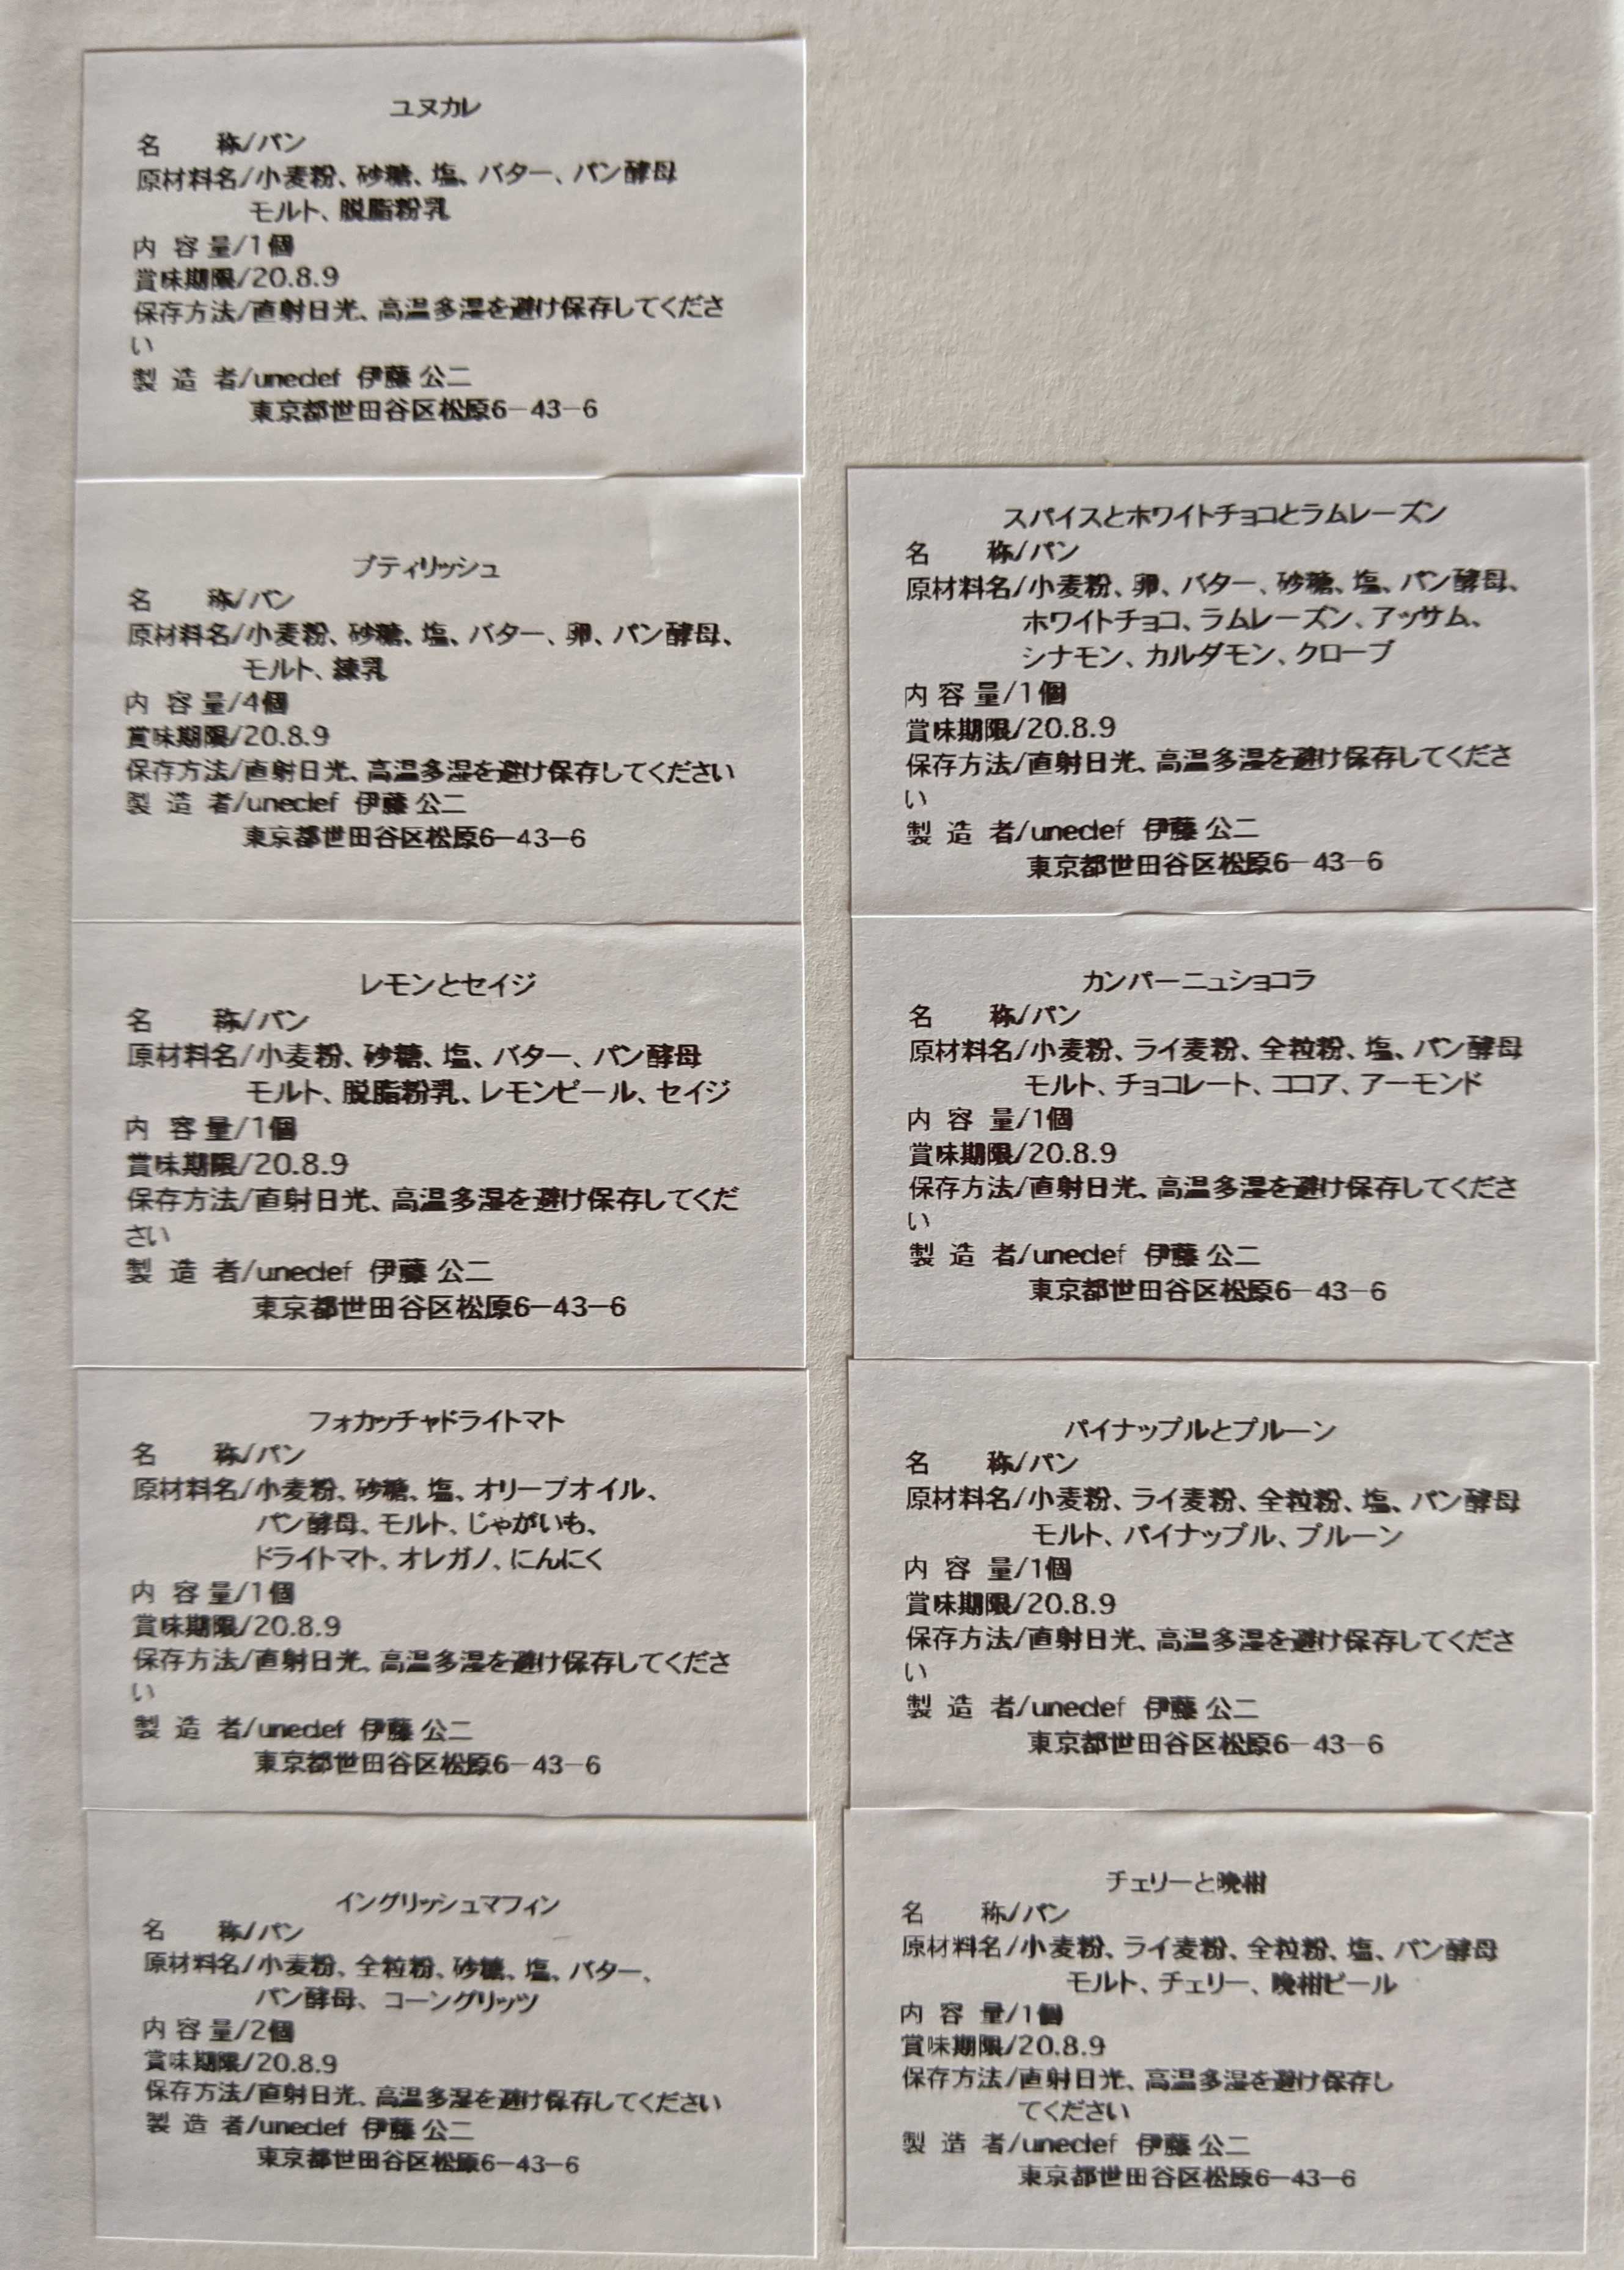 ユヌカレ
名　　称/パン
原材料名/小麦粉、砂糖、塩、バター、パン酵母
モルト、脱脂粉乳
内 容 量/1個
賞味期限/20.8.9
保存方法/直射日光、高温多湿を避け保存してくださ
い
製 造 者/uneclef 伊藤 公二
東京都世田谷区松原6-43-6
プティリッシュ
名　　称/パン
原材料名/小麦粉、砂糖、塩、バター、卵、パン酵母、
モルト、練乳
内 容 量/4個
賞味期限/20.8.9
保存方法/直射日光、高温多湿を避け保存してください
製 造 者/uneclef 伊藤 公二
東京都世田谷区松原6-43-6
レモンとセイジ
名　　称/パン
原材料名/小麦粉、砂糖、塩、バター、パン酵母
モルト、脱脂粉乳、レモンピール、セイジ
内 容 量/1個
賞味期限/20.8.9
保存方法/直射日光、高温多湿を避け保存してくだ
さい
製 造 者/uneclef 伊藤 公二
東京都世田谷区松原6-43-6
フォカッチャドライトマト
名　　称/パン
原材料名/小麦粉、砂糖、塩、オリーブオイル、
パン酵母、モルト、じゃがいも、
ドライトマト、オレガノ、にんにく
内 容 量/1個
賞味期限/20.8.9
保存方法/直射日光、高温多湿を避け保存してくださ
い
製 造 者/uneclef 伊藤 公二
東京都世田谷区松原6-43-6
イングリッシュマフィン
名　　称/パン
原材料名/小麦粉、全粒粉、砂糖、塩、バター、
パン酵母、コーングリッツ
内 容 量/2個
賞味期限/20.8.9
保存方法/直射日光、高温多湿を避け保存してください
製 造 者/uneclef 伊藤 公二
東京都世田谷区松原6-43-6
スパイスとホワイトチョコとラムレーズン
名　　称/パン
原材料名/小麦粉、卵、バター、砂糖、塩、パン酵母、
ホワイトチョコ、ラムレーズン、アッサム、
シナモン、カルダモン、クローブ
内 容 量/1個
賞味期限/20.8.9
保存方法/直射日光、高温多湿を避け保存してくださ
い
製 造 者/uneclef 伊藤 公二
東京都世田谷区松原6-43-6
カンパーニュショコラ
名　　称/パン
原材料名/小麦粉、ライ麦粉、全粒粉、塩、パン酵母
モルト、チョコレート、ココア、アーモンド
内 容 量/1個
賞味期限/20.8.9
保存方法/直射日光、高温多湿を避け保存してくださ
い
製 造 者/uneclef 伊藤 公二
東京都世田谷区松原6-43-6
パイナップルとプルーン
名　　称/パン
原材料名/小麦粉、ライ麦粉、全粒粉、塩、パン酵母
モルト、パイナップル、プルーン
内 容 量/1個
賞味期限/20.8.9
保存方法/直射日光、高温多湿を避け保存してくださ
い
製 造 者/uneclef 伊藤 公二
東京都世田谷区松原6-43-6
チェリーと晩柑
名　　称/パン
原材料名/小麦粉、ライ麦粉、全粒粉、塩、パン酵母
モルト、チェリー、晩柑ピール
内 容 量/1個
賞味期限/20.8.9
保存方法/直射日光、高温多湿を避け保存し
てください
製 造 者/uneclef 伊藤 公二
東京都世田谷区松原6-43-6